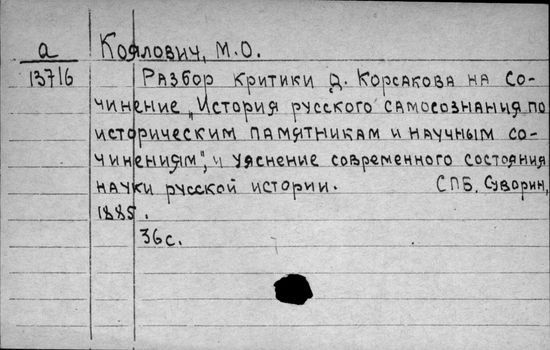 а Коялович, М.О.
13716 Разбор критики Д. Корсакова на со-
чинение „История русского самосознания по
историческим памятникам и научным со-
чинениям", и уяснение современного состояния
науки русской истории. СПБ, Суворин,
1885.
36с.